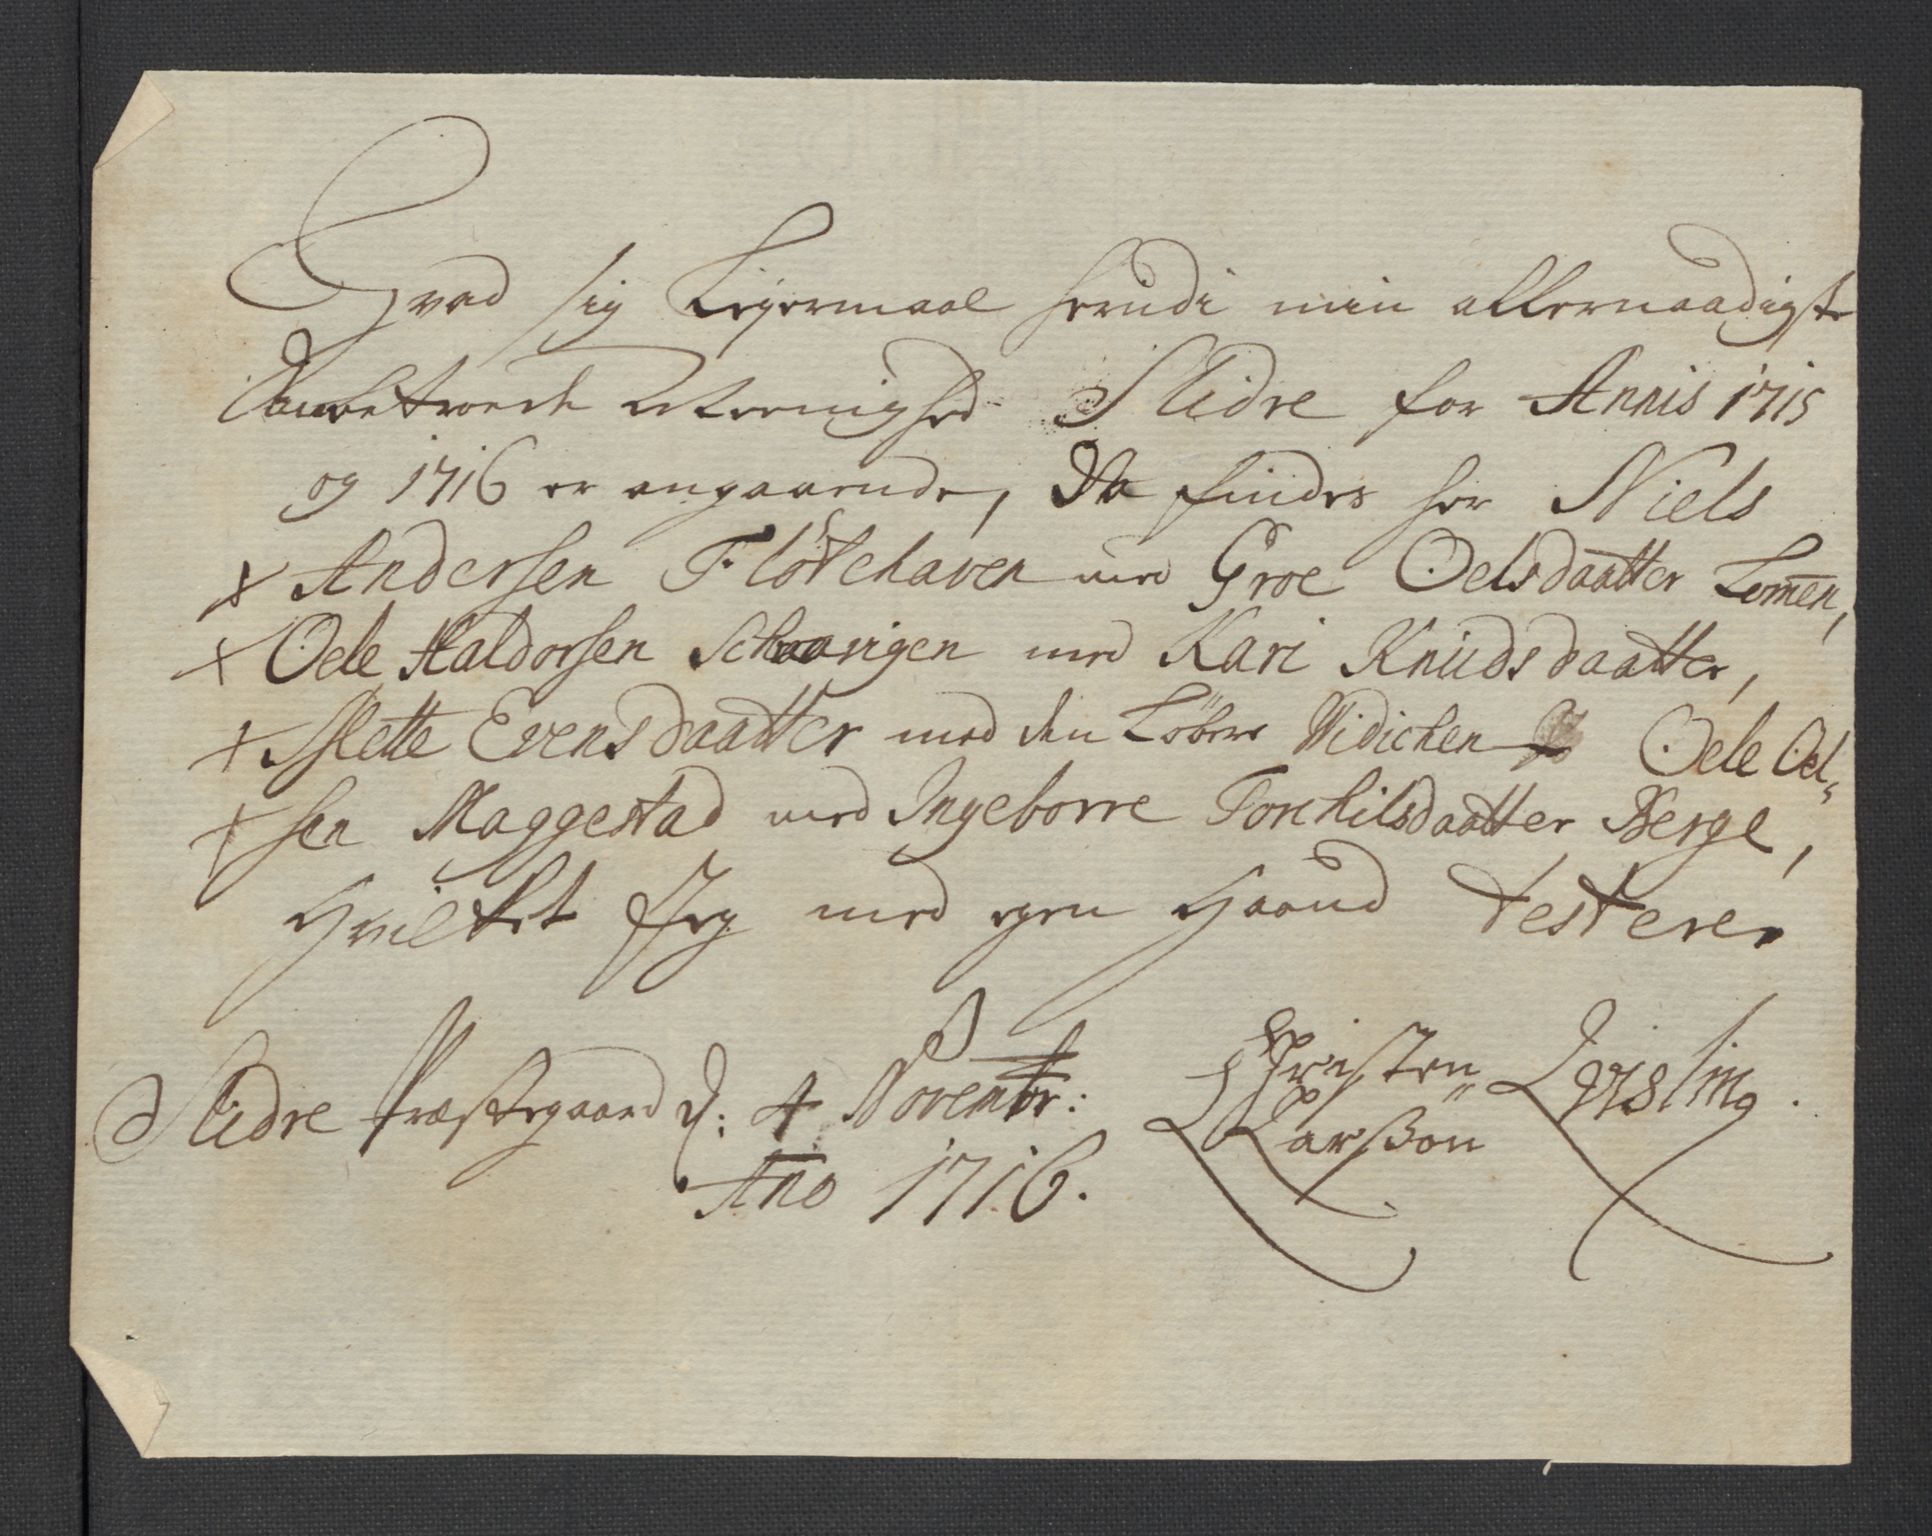 Hvad sig Leyermaal herudi min allernaadigste
anbetroede Meenighed Slidre for Annis 1715
og 1716 er angaaende, da findes her Niels
+ Andersen Flötehaven med Groe Oelsdaatter Lomen,
+ Oele Haldorsen med Kari Knudsdaatter,
+ Mette Evensdaatter med den Löbere Widichen Oele Oel-
+ sen Maggestad med Ingeborre Torchilsdaatter Berge,
Hvilket Jeg med egen Haand testerer
Slidre Præstegaard d: 4 Novembr:
Ano 1716.
Christen Larsson Leyssling.